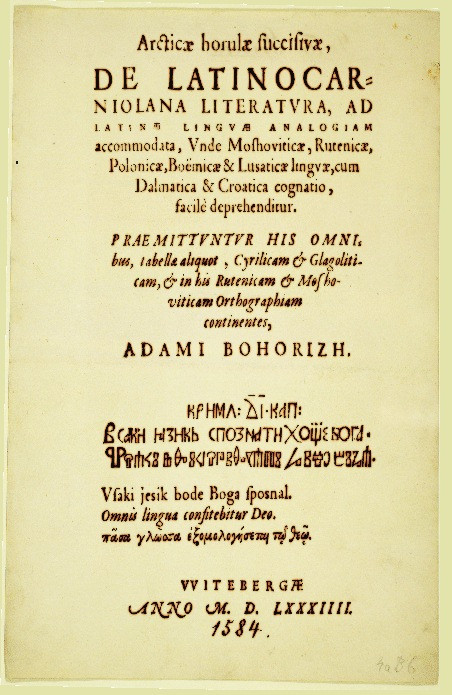 Arcticæ horulæ ſucciſivæ,
DE LATINOCAR=
NIOLANA LITERATVRA, AD
LATINÆ LINGVÆ ANALOGIAM
accommodata, Vnde Moſhoviticæ, Rutenicæ,
Polonicæ, Boëmicæ & Luſaticæ lingvæ, cum
Dalmatica & Croatica cognatio,
facilè deprehenditur.
PRAEMITTVNTVR HIS OMNI.
bus, tabellæ aliquot, Cyrilicam & Glagoliti-
cam, & in his Rutenicam & Moſho-
viticam Orthographiam
continentes,
ADAMI BOHORIZH.
КРНМЛ: Д͞І·КАП:
СПОЗНАТИ ХОЩЕ БОГА·
Vſaki jesik bode Boga ſposnal.
Omnis lingua confitebitur Deo.
πᾶσα γλῶσσα ἐξομολογήσεται τῷ θεῷ.
VVITEBERGÆ
ANNO M. D. LXXXIIII.
1584.